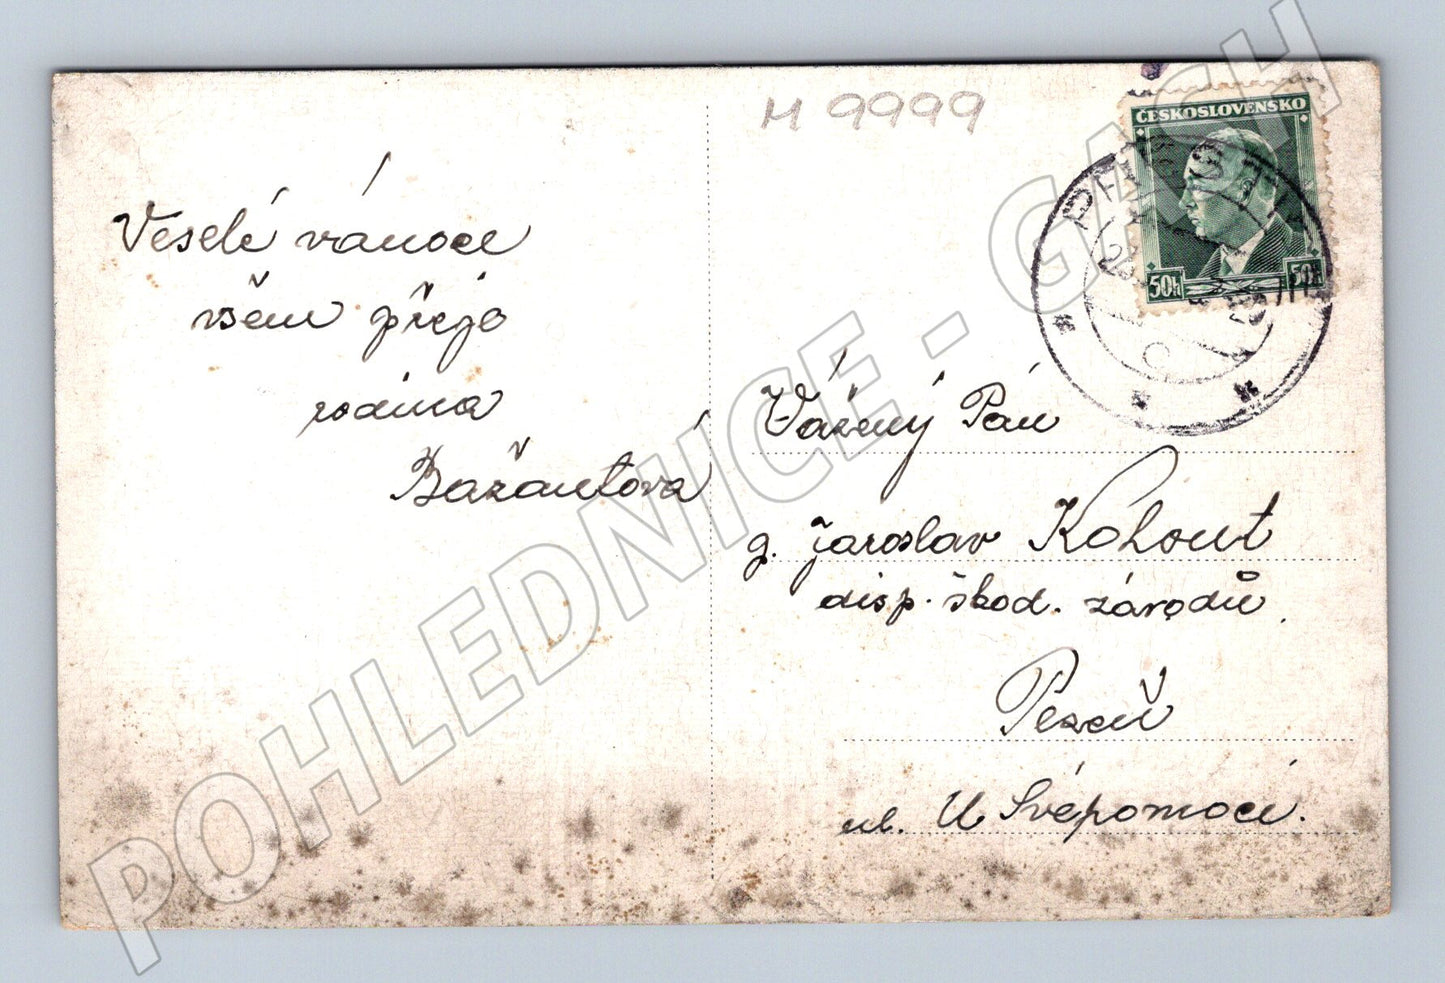 M 9999
ČESKOSLOVENSKO
50h
50h
Veselé vánoce
všem přeje
rodina
Bažantová
Vážený Pán
p. Jaroslav Kohout
disp. škod. závodů
Plzeň
ul. U Svépomoci.
POHLEDNICE - GACH